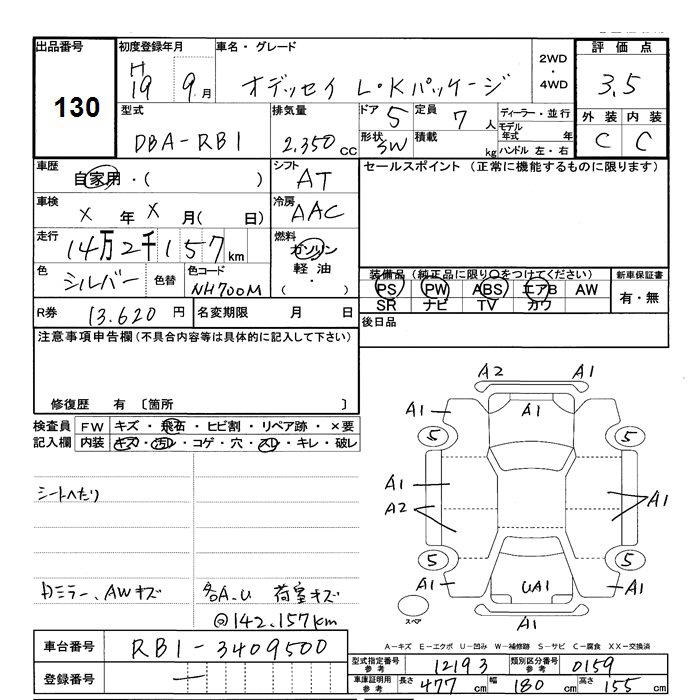 出品番号 初度登録年月 車名・グレード 2WD・4WD 評価点
130 H19 9月 オデッセイ L・Kパッケージ 3.5
型式 排気量 ドア 5 定員 7人 ディーラー・並行 外装 内装
DBA-RB1 2,350cc 形状 3W 積載 kg モデル年式 年 C C
ハンドル 左・右
車歴 自家用・( ) シフト AT セールスポイント (正常に機能するものに限ります)
車検 X年X月( 日) 冷房 AAC
走行 14万2千157km 燃料 ガソリン 軽油・( )
色 シルバー 色替 色コード NH700M
装備品(純正品に限り○をつけてください) 新車保証書
PS PW ABS エアB AW 有・無
SR ナビ TV カワ
R券 13.620円 名変期限 月 日 後日品
注意事項申告欄(不具合内容等は具体的に記入して下さい)
修復歴 有 〔箇所 〕
検査員記入欄 FW キズ・飛石・ヒビ割・リペア跡・×要
内装 キズ・汚レ・コゲ・穴・スレ・キレ・破レ
シートへたり
カミラー、AWキズ
A、U 荷室キズ
@142,157km
A2 A1
A1 A1 A1
5 5
A1
A2 A1
5 5
A1 UA1 A1
スペア A1
A-キズ E-エクボ U-凹み W-補修跡 S-サビ C-腐食 XX-交換済
車台番号 RB1-3409500
型式指定番号 参考 12193 類別区分番号 参考 0159
登録番号 一
車庫証明用 参考 長さ 477cm 幅 180cm 高さ 155cm